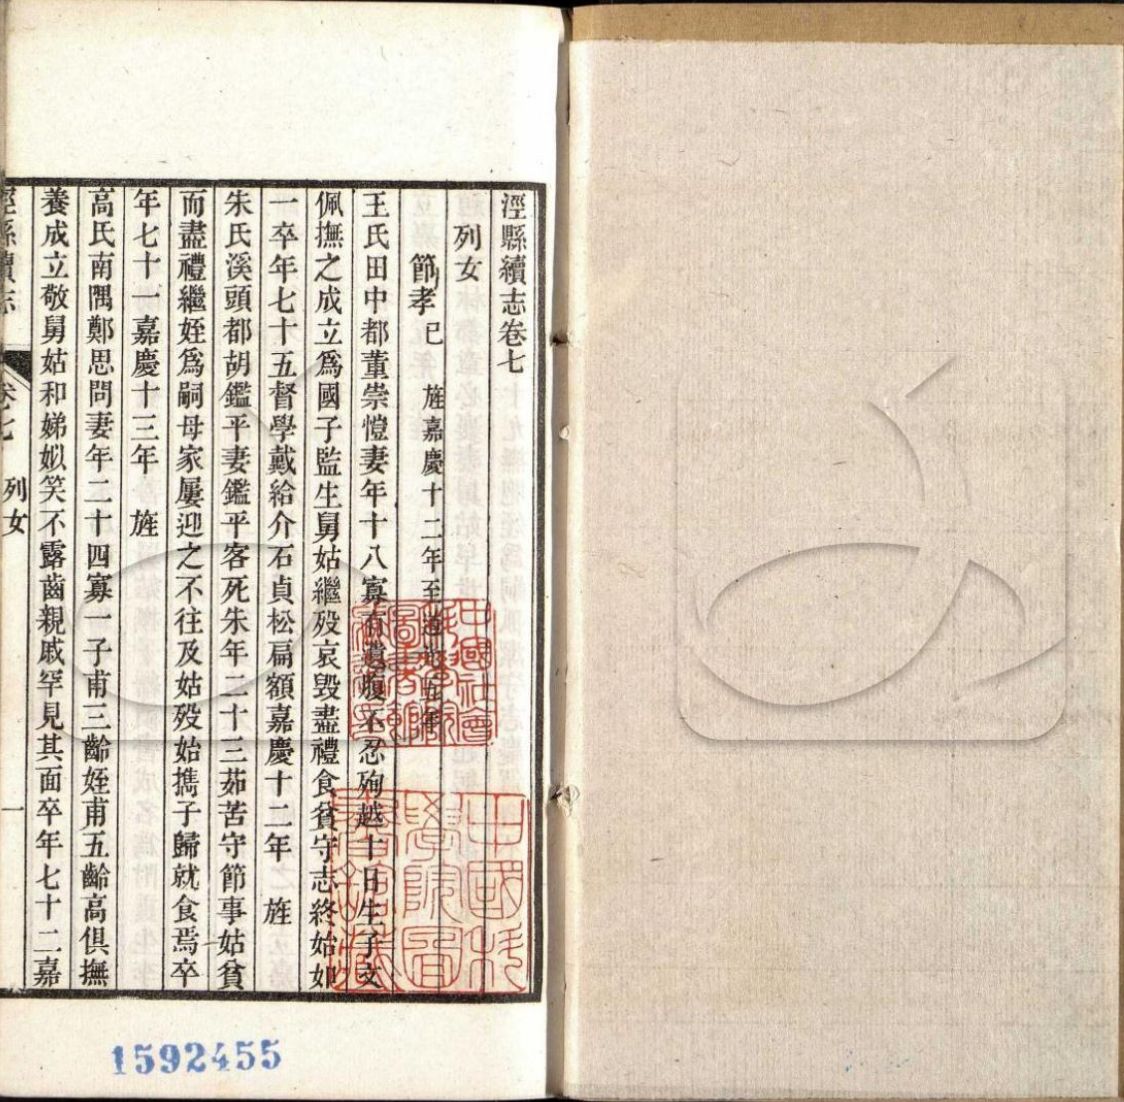 涇縣續志卷七
列女
節孝已　旌嘉慶十二年至道光五年
王氏田中都董崇愷妻年十八寡有遺腹不忍殉越十日生子文
佩撫之成立爲國子監生舅姑繼歿哀毀盡禮食貧守志終始如
一卒年七十五督學戴給介石貞松扁額嘉慶十二年　旌
朱氏溪頭都胡鑑平妻鑑平客死朱年二十三茹苦守節事姑貧
而盡禮繼姪爲嗣母家屢迎之不往及姑歿始攜子歸就食焉卒
年七十一嘉慶十三年　旌
高氏南隅鄭思問妻年二十四寡一子甫三齡姪甫五齡高俱撫
養成立敬舅姑和娣姒笑不露齒親戚罕見其面卒年七十二嘉
涇縣續志　卷七　列女　一
中國社會科學院
1592455